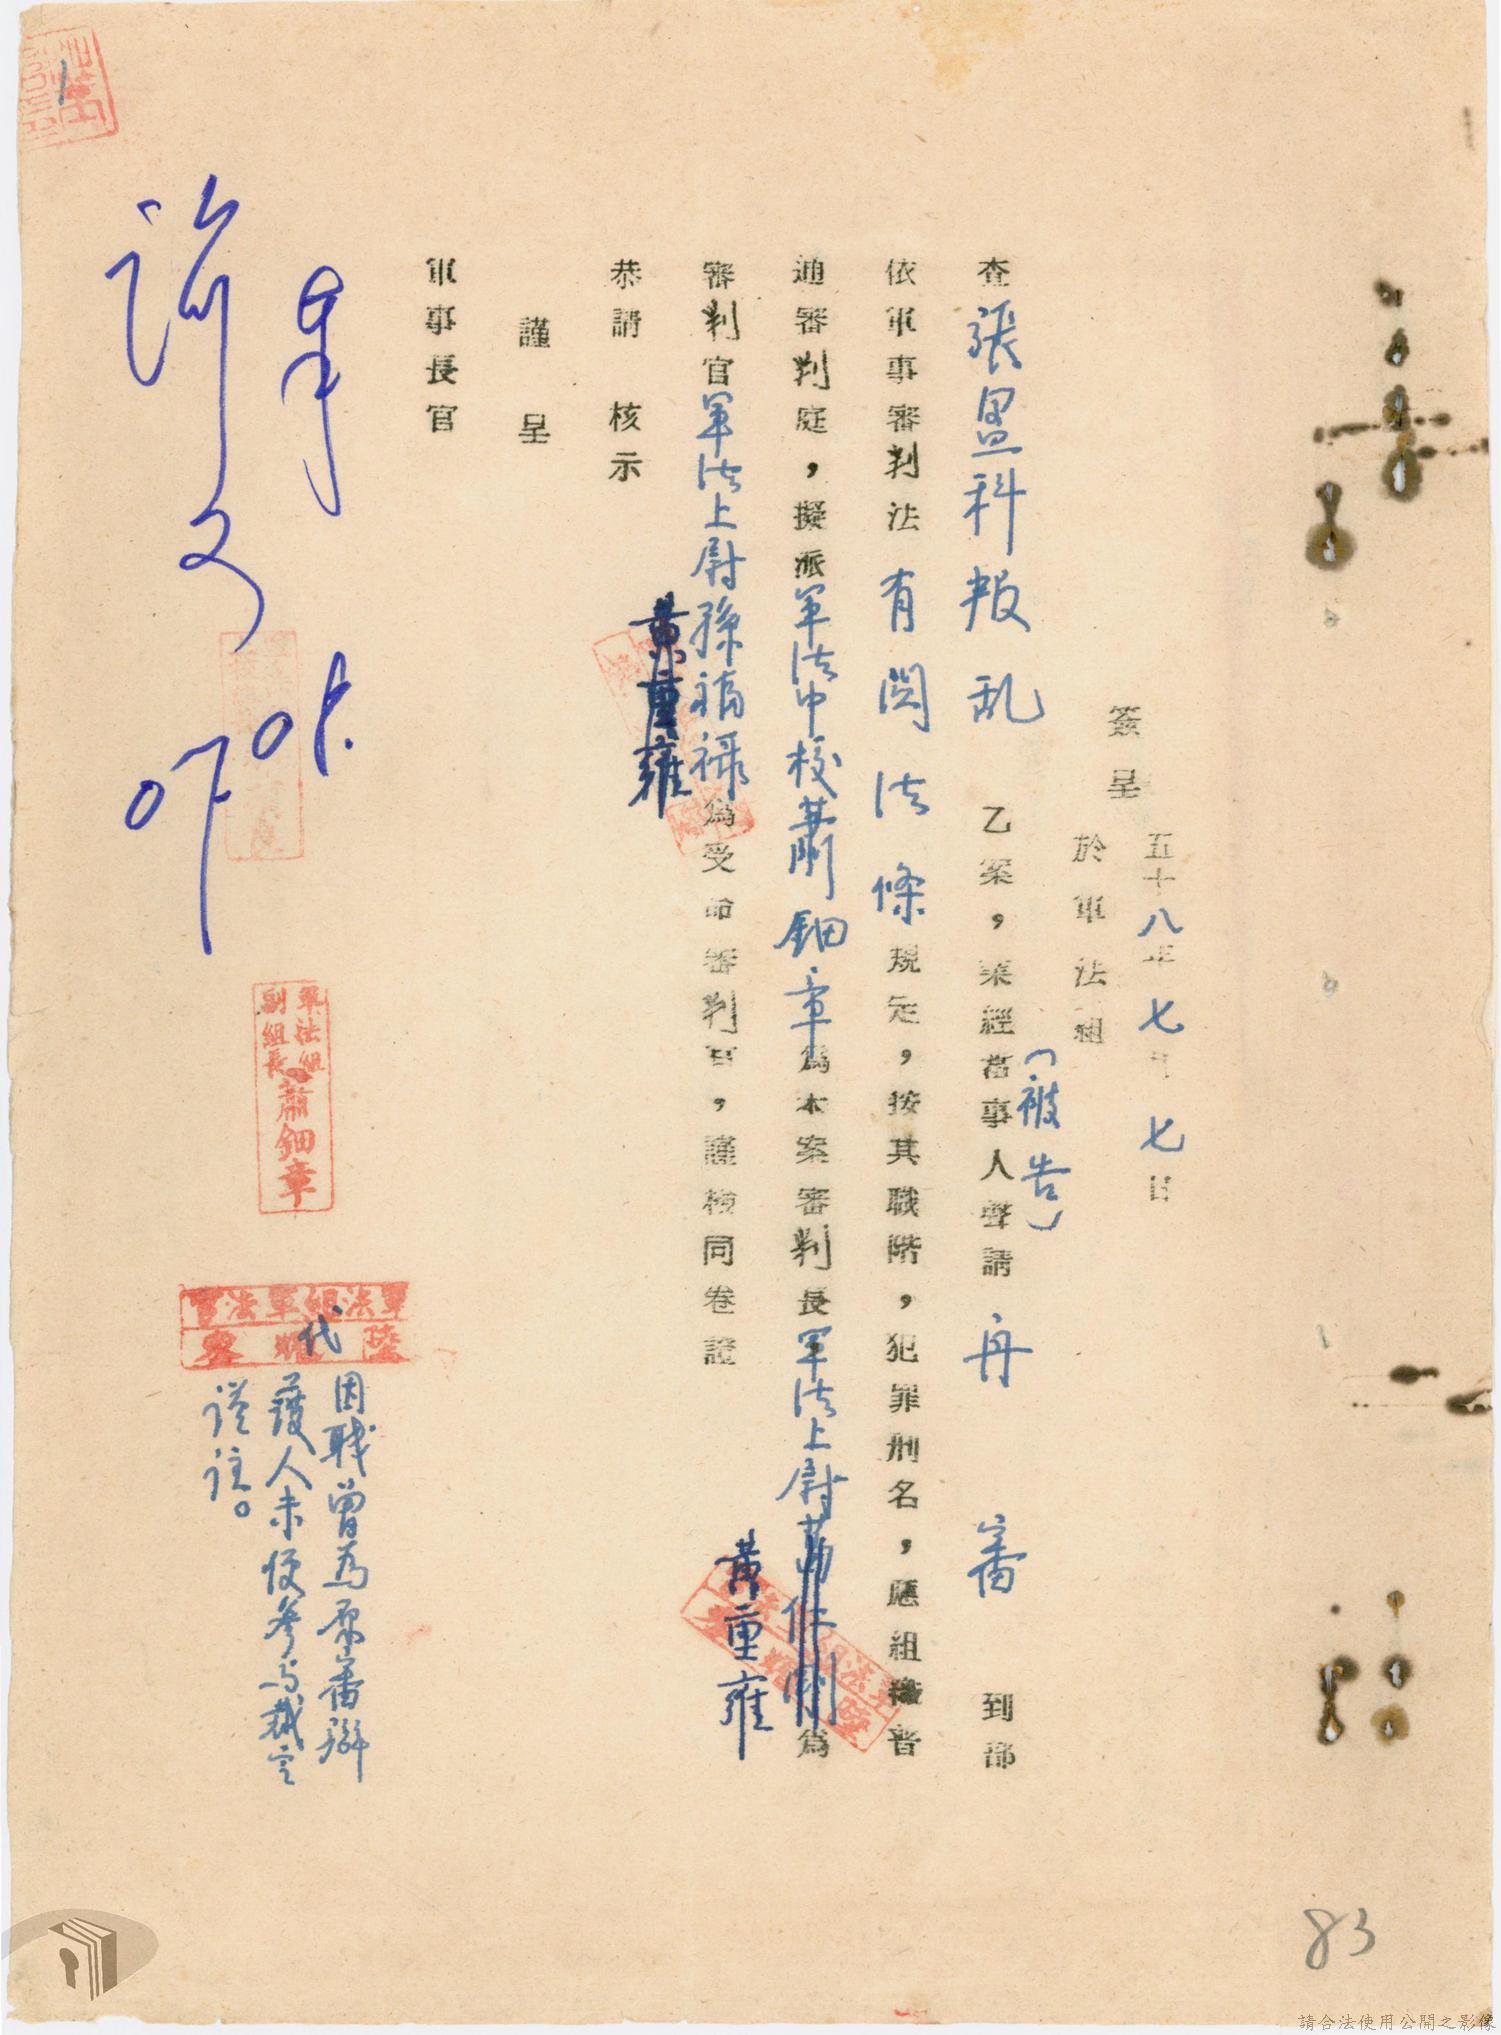 簽呈 五十八年七月七日
於軍法組
查張墨科叛乱乙案，業經當事人(被告)聲請再審到部
依軍事審判法有関法條規定，按其職階，犯罪刑名，應組織普
通審判庭，擬派軍法中校蕭鈿章為本案審判長軍法上尉為
黃重雍
審判官軍法上尉孫禎祿為受命審判官，謹檢同卷證
黃重雍
恭請 核示
謹呈
軍事長官
軍法組
副組長 蕭鈿章
軍法組軍法官
陸 代
因職曾為原審辯
護人未便參與裁定
謹註。
83
請合法使用公開之影像